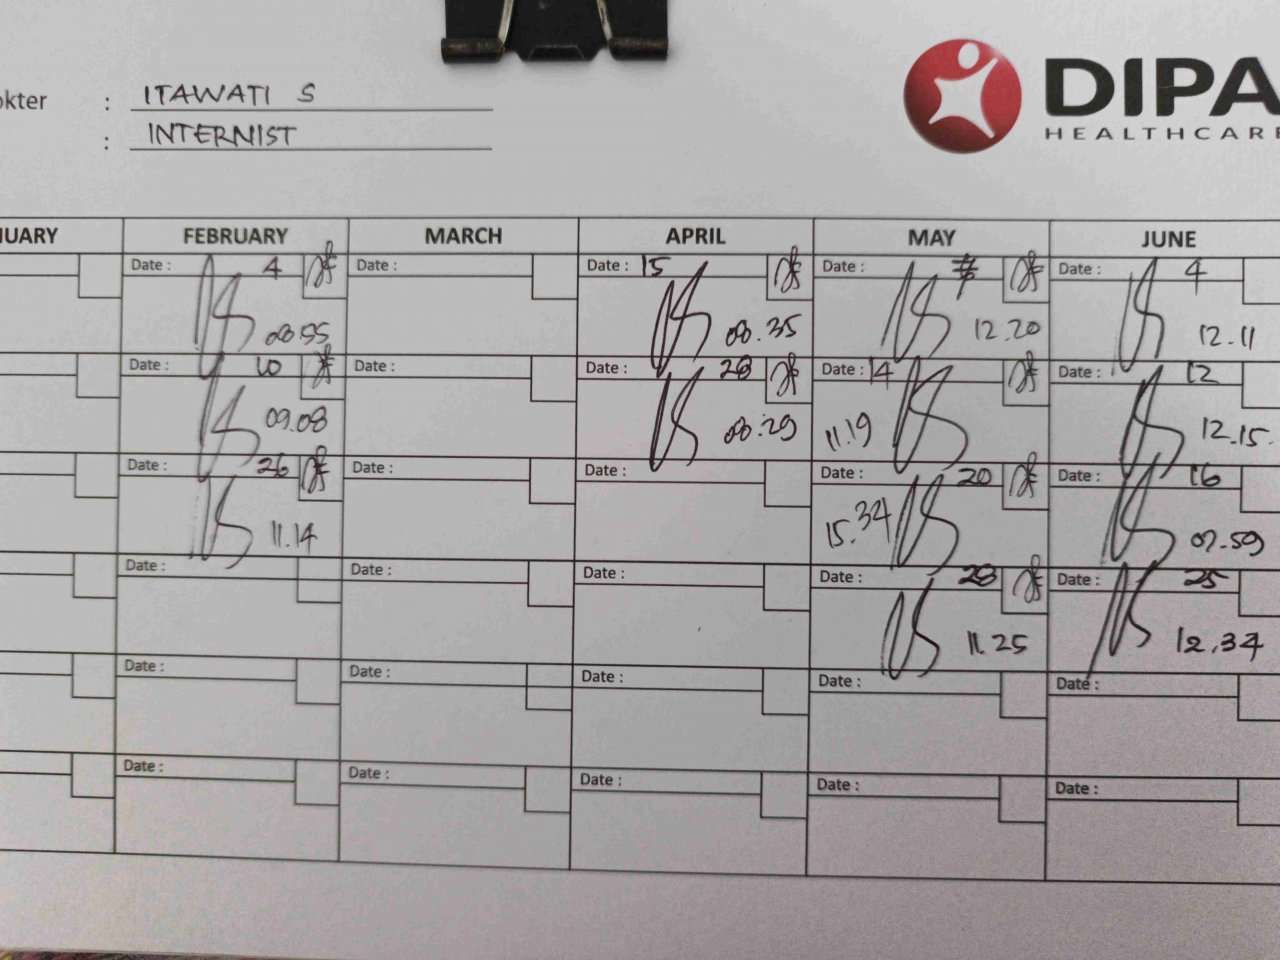 okter : ITAWATI S
: INTERNIST
DIPA
HEALTHCARE
NUARY FEBRUARY MARCH APRIL MAY JUNE
Date : 4 Date : Date : 15 Date : Date : 4
08.55 08.35 12.20 12.11
Date : 10 Date : Date : 28 Date : 14 Date : 12
09.08 08.29 11.19 12.15
Date : 26 Date : Date : Date : 20 Date : 16
11.14 15.34 07.59
Date : Date : Date : Date : 28 Date : 25
11.25 12.34
Date : Date : Date : Date : Date :
Date : Date : Date : Date : Date :